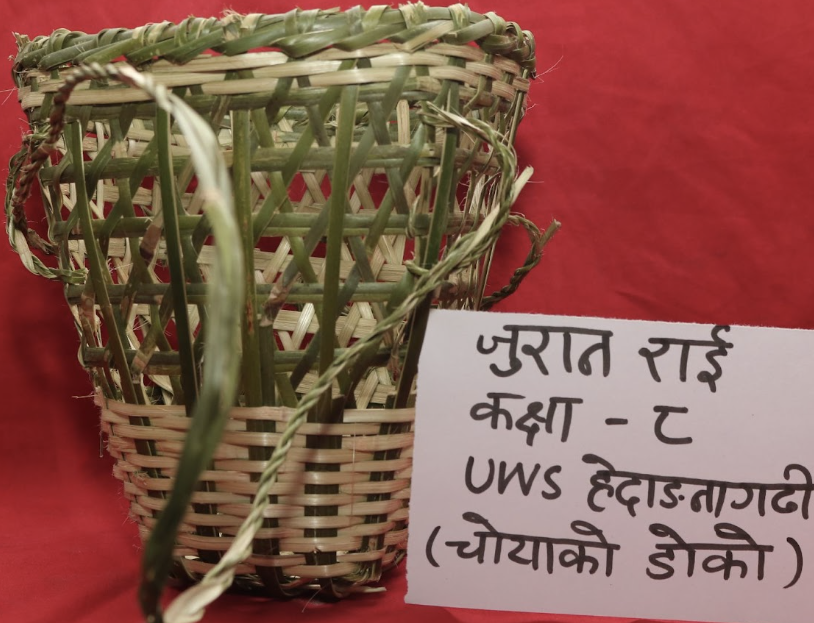 जुरान राई
कक्षा - ८
UWS हेदाङनागढी
(चोयाको डोको)